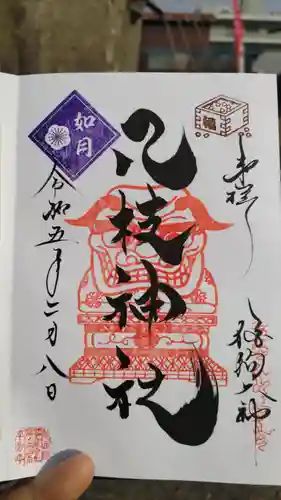 奉拝
狛狗大神
八枝神社
如月
福
令和五年二月八日